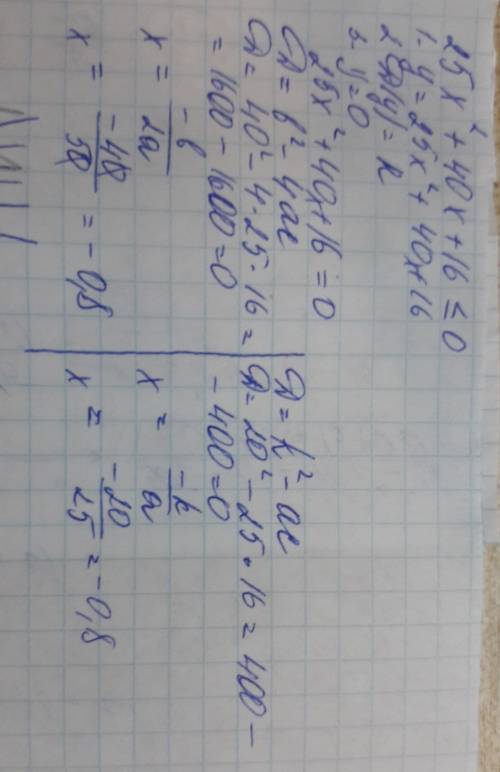 25x² + 40x + 16 ≤ 0
1. y = 25x² + 40x + 16
2. D(y) = R
3. y = 0
25x² + 40x + 16 = 0
D = b² - 4ac
D = 40² - 4·25·16 =
= 1600 - 1600 = 0
x = -b/2a
x = -40/50 = -0,8
D = k² - ac
D = 20² - 25·16 = 400 -
- 400 = 0
x = -k/a
x = -20/25 = -0,8